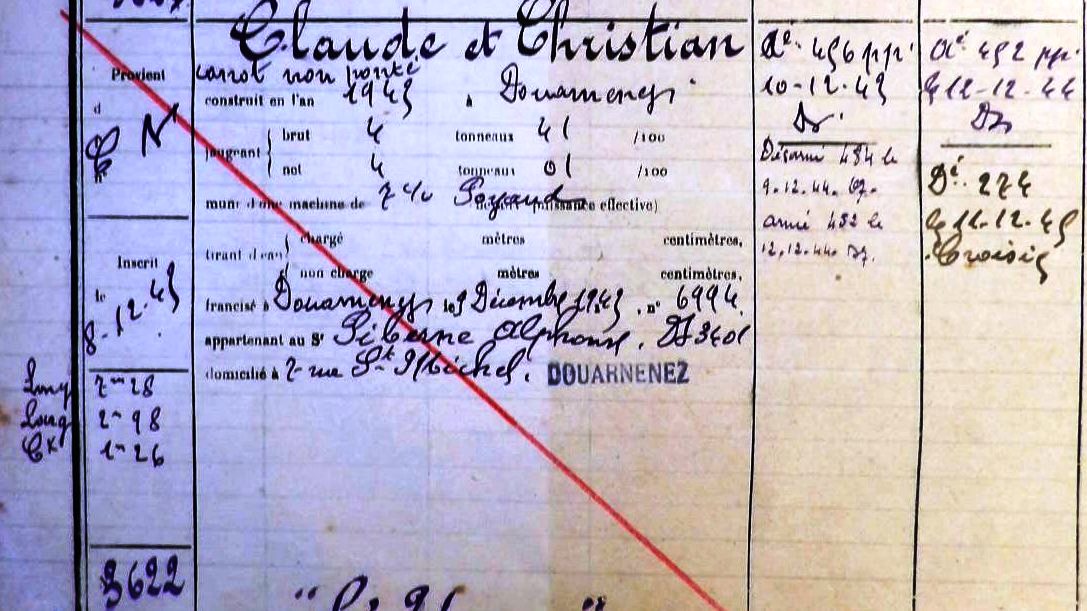 Claude et Christian
Provient
d
N
n°
canot non ponté
construit en l'an 1943 à Douarnenez
jaugeant
brut 4 tonneaux 41 /100
net 4 tonneaux 01 /100
muni d'une machine de 7 c/v (puissance effective)
tirant d'eau
chargé mètres centimètres,
non chargé mètres centimètres,
francisé à Douarnenez le 9 Décembre 1943, n° 6994
appartenant au Sr Alphonse, Dz 3401
domicilié à 2 rue St Michel. DOUARNENEZ
Inscrit
le
8-12-43
Long 7m28
Larg 2m98
Cx 1m26
3622
Aé 456 pp
10-12-43
Dz
Désarmé 484 le
9.12.44 Dz.
armé 492 le
12.12.44 Dz.
Aé 492 pp
le 12-12-44
Dz
Dé 274
le 11-12-45